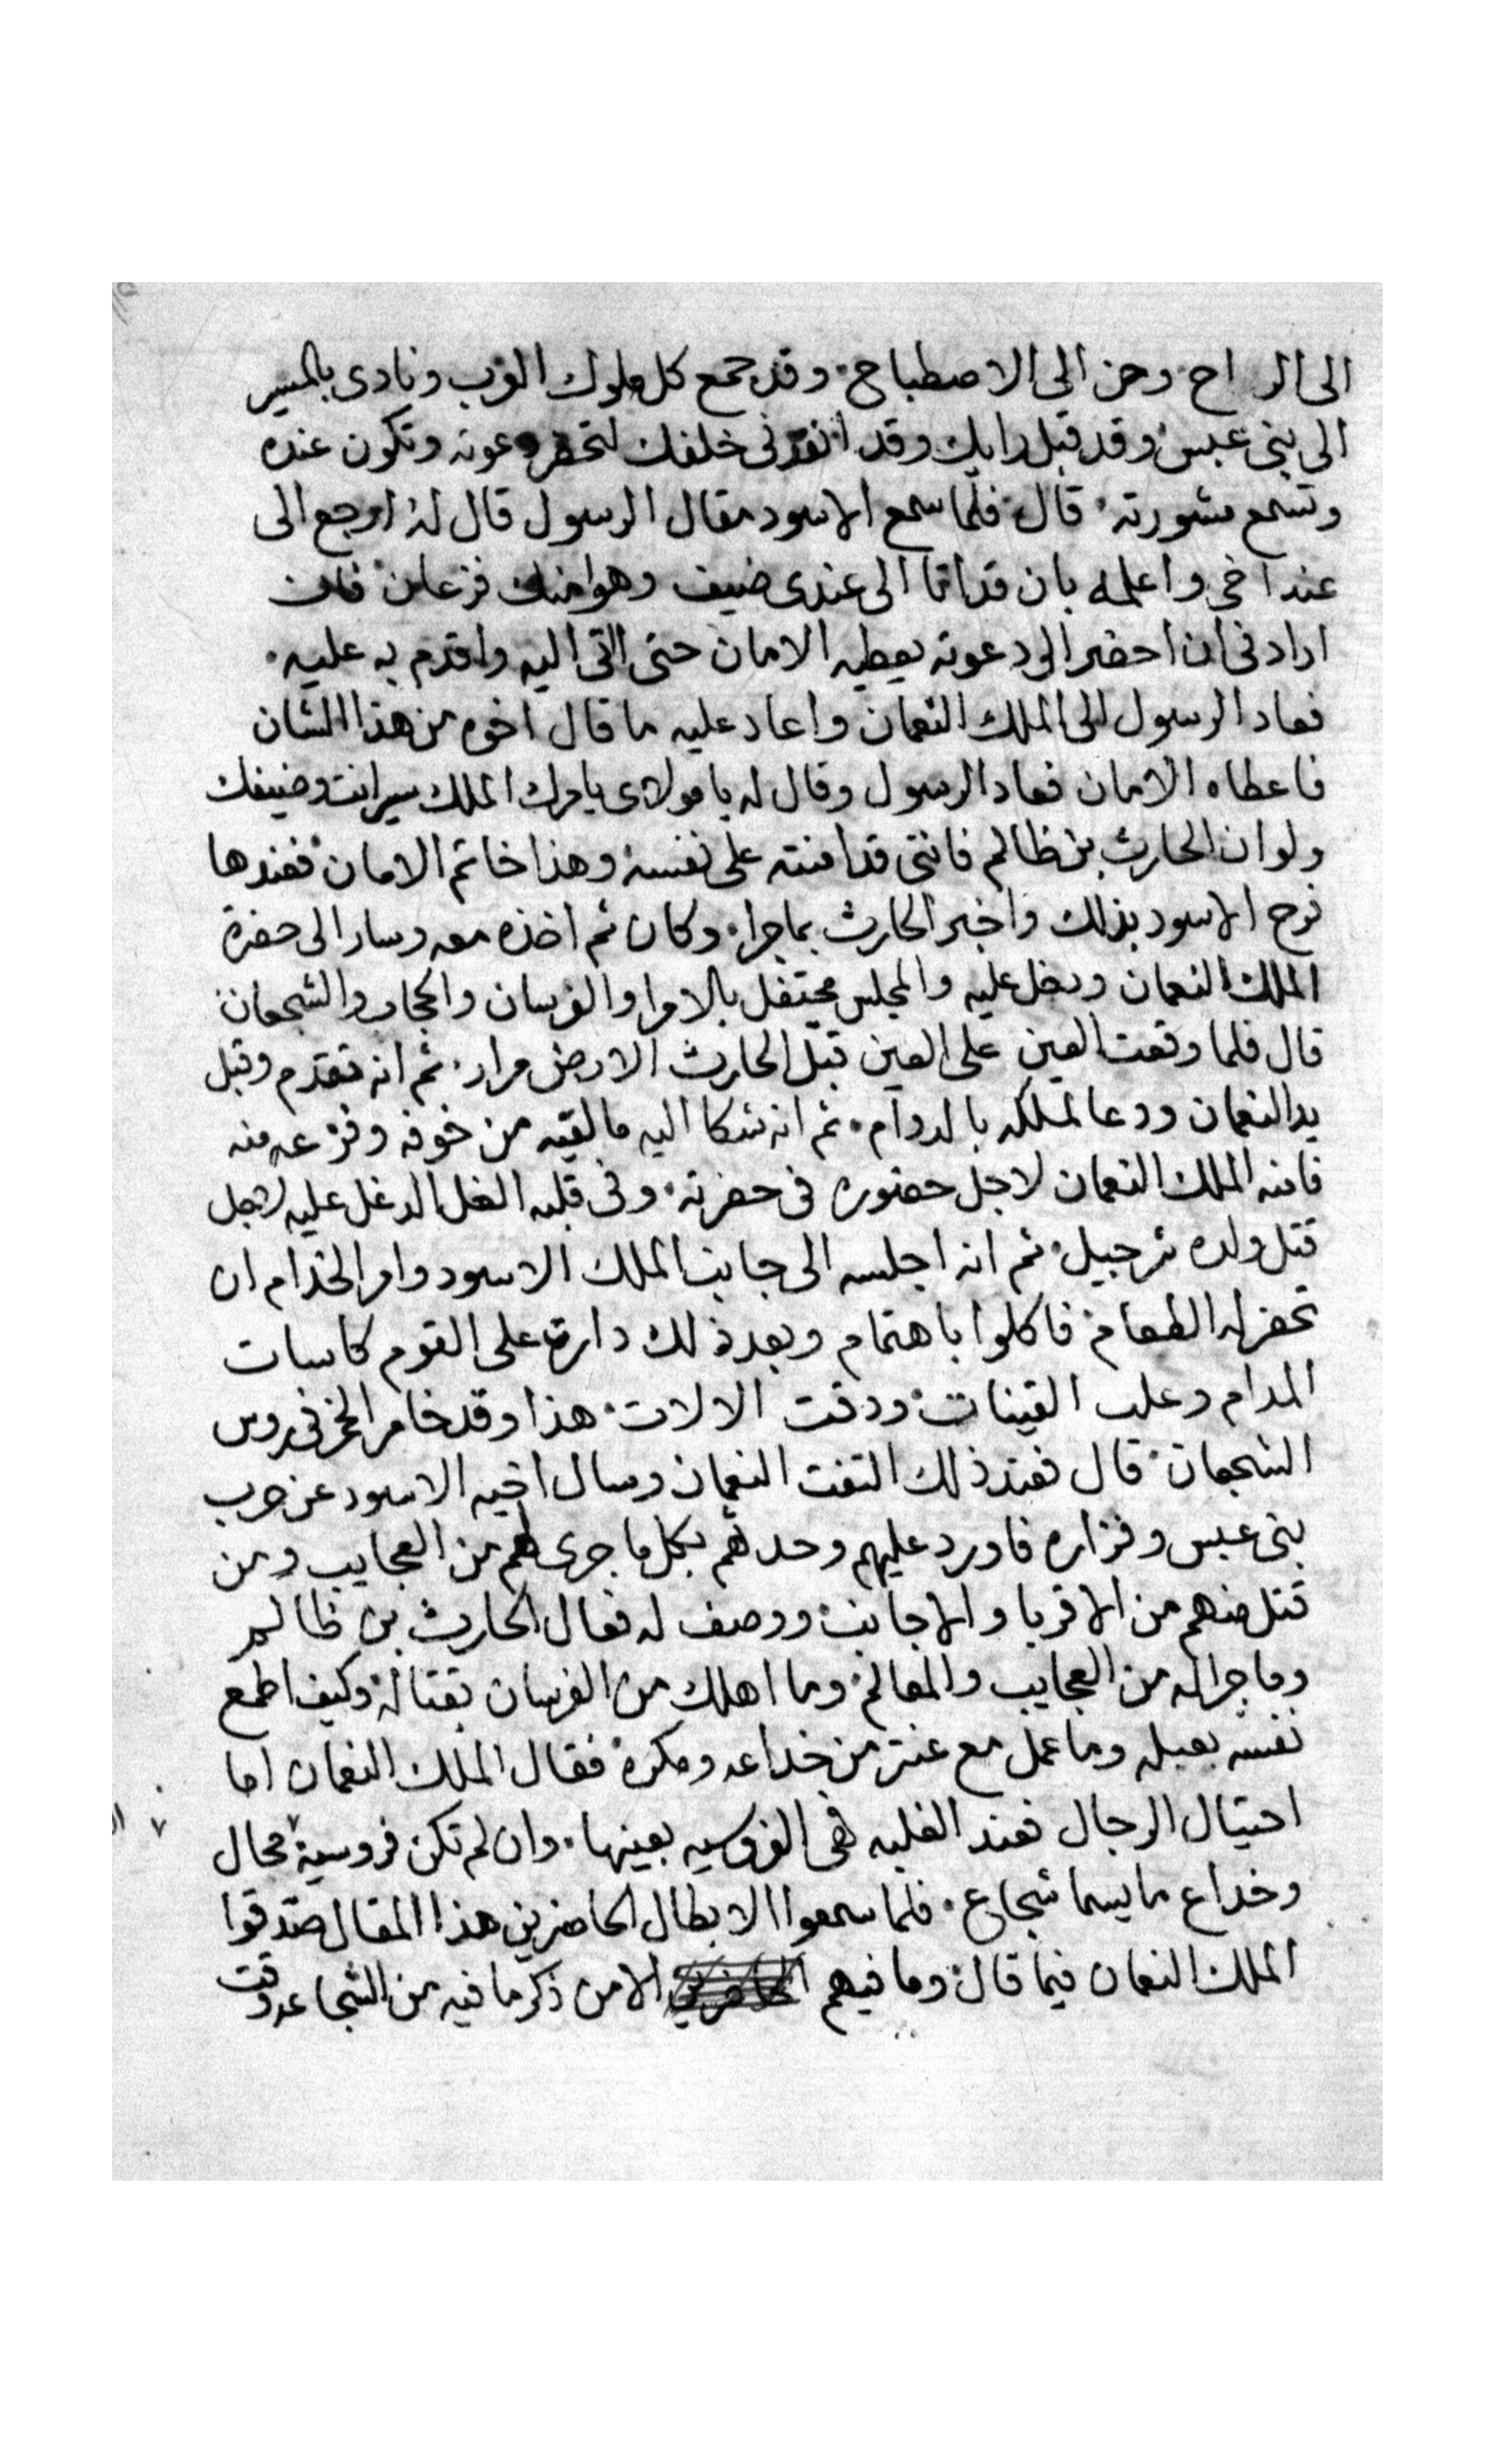 الى الراح وحن الى الاصطباح وقد جمع كل ملوك العرب ونادى بالمسير
الى بنى عبس وقد قبل رايك وقد انفدنى خلفك لتحضر دعوته وتكون عنده
وتسمع مشورته قال فلما سمع الاسود مقال الرسول قال له ارجع الى
عند اخى واعلمه بان قد اتا الى عندى ضيف وهو منك فزعان فان
ارادنى ان احضر الى دعوته يعطيه الامان حتى اتى اليه واقدم به عليه
فعاد الرسول الى الملك النعمان واعاد عليه ما قال اخوه من هذا الشان
فاعطاه الامان فعاد الرسول وقال له يا مولاى يامرك الملك سير انت وضيفك
ولو ان الحارث بن ظالم فاننى قد امنته على نفسه وهذا خاتم الامان فعندها
فرح الاسود بذلك واخبر الحارث بما جرا وكان ثم اخذه معه وسار الى حضرة
الملك النعمان ودخل عليه والمجلس محتفل بالامرا والفرسان والحجاب والشجعان
قال فلما وقعت العين على العين قبل الحارث الارض مرار ثم انه تقدم وقبل
يد النعمان ودعا لملكه بالدوام ثم انه شكا اليه ما لقيه من خوفه وفزعه منه
فامنه الملك النعمان لاجل حضوره فى حضرته وفى قلبه الغل الدغل عليه لاجل
قتل ولده شرحبيل ثم انه اجلسه الى جانب الملك الاسود وامر الخدام ان
تحضر له الطعام فاكلوا باهتمام وبعد ذلك دارة على القوم كاسات
المدام وعلب القينات ودقت الالات هذا وقد خامر الخمر فى روس
الشجعان قال فعند ذلك التفت النعمان وسال اخيه الاسود عن حرب
بنى عبس وفزاره فاورد عليهم وحدثهم بكل ما جرى لهم من العجايب ومن
قتل منهم من الاقربا والاجانب ووصف له فعال الحارث بن ظالم
وما جرا له من العجايب والمعالم وما اهلك من الفرسان بقتاله وكيف اطمع
نفسه بعبله وما عمل مع عنتر من خداعه ومكره فقال الملك النعمان اما
احتيال الرجال فعند الغلبه هى الفروسيه بعينها وان لم تكن فروسية محال
وخداع ما يسما شجاع فلما سمعوا الابطال الحاضرين هذا المقال صدقوا
الملك النعمان فيما قال وما فيهم الا من ذكر ما فيه من الشجاعه وقت